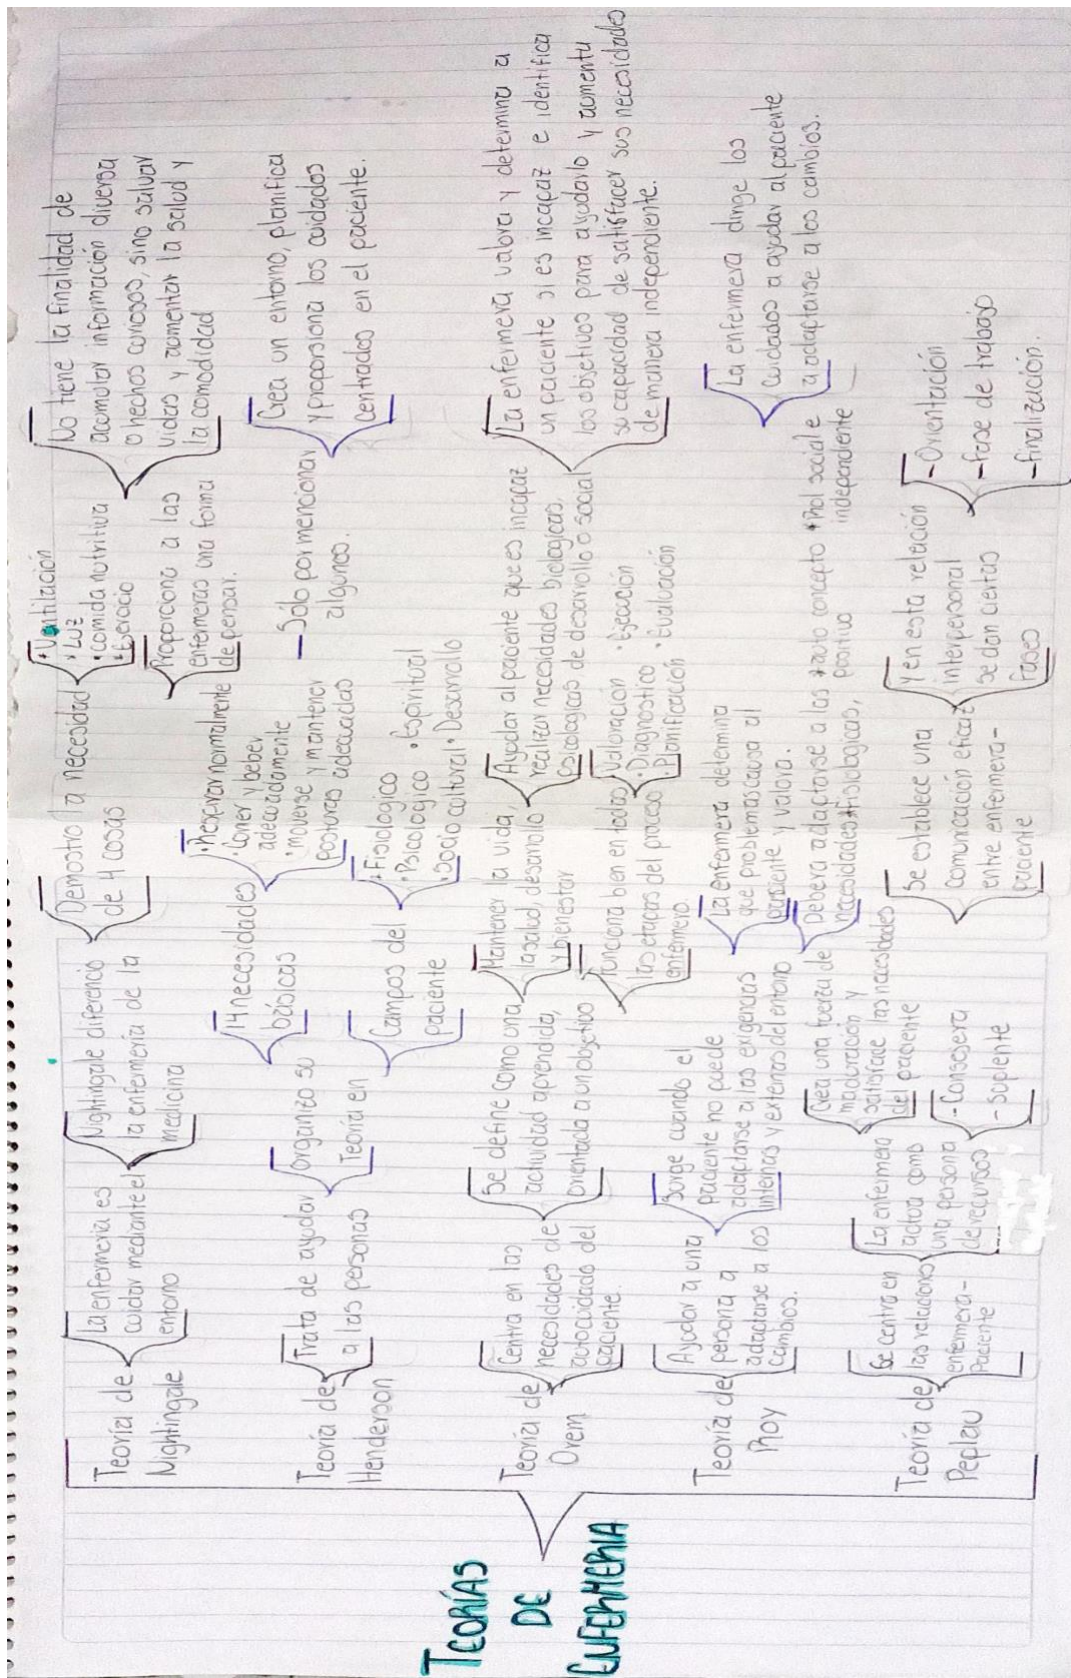 TEORÍAS
DE
ENFERMERIA
Teoría de
Nightingale
La enfermería es
cuidar mediante el
entorno
Nightingale diferencio
la enfermería de la
medicina
Demostro la necesidad
de 4 cosas
• Ventilación
• Luz
• comida nutritiva
• Ejercicio
Proporciona a las
enfermeras una forma
de pensar.
No tiene la finalidad de
acumular información diversa
o hechos curiosos, sino salvar
vidas y aumentar la salud y
la comodidad
Teoría de
Henderson
Trata de ayudar
a las personas
Organizo su
Teoría en
14 necesidades
básicas
• Respirar normalmente
• Comer y beber
adecuadamente
• moverse y mantener
posturas adecuadas
— Sólo por mencionar
algunos.
Campos del
paciente
• Fisiologico
• Psicologico • Espiritual
• Socio cultural • Desarrollo
Crea un entorno, planifica
y proporsiona los cuidados
centrados en el paciente.
Teoría de
Orem
Centra en las
necesidades de
autocuidado del
paciente.
Se define como una
actividad aprendida,
orientada a un objetivo
Mantener la vida,
la salud, desarrollo
y bienestar
Ayudar al paciente que es incapaz
realizar necesidades biologicas,
psicologicas de desarrollo o social
funciona ben en todas
las etapas del proceso
enfermero.
• Valoración • Ejecución
• Diagnostico • Evaluación
• Planificación
La enfermera valora y determina a
un paciente si es incapaz e identifica
los objetivos para ayudarlo y aumenta
su capacidad de satisfacer sus necesidades
de manera independiente.
Teoría de
Roy
Ayudar a una
persona a
adactarse a los
cambios.
Surge cuando el
paciente no puede
adaptarse a las exigencias
internas y externas del entorno
La enfermera determina
que problemas causa al
paciente y valora.
Debera adaptarse a las • auto concepto • Rol social e
necesidades • fisiologicas, positivo independiente
La enfermera dirige los
cuidados a ayudar al paciente
a adaptarse a los cambios.
Teoría de
Peplau
Se centra en
las relaciones
enfermera-
Paciente
La enfermera
actua como
una persona
de recursos
Crea una fuerza de
maduración y
satisface las necesidades
del paciente
- Consejera
- Suplente
Se establece una
comunicación eficaz
entre enfermera-
paciente
Y en esta relación
interpersonal
se dan ciertas
fases
- Orientación
- fase de trabajo
- finalización.